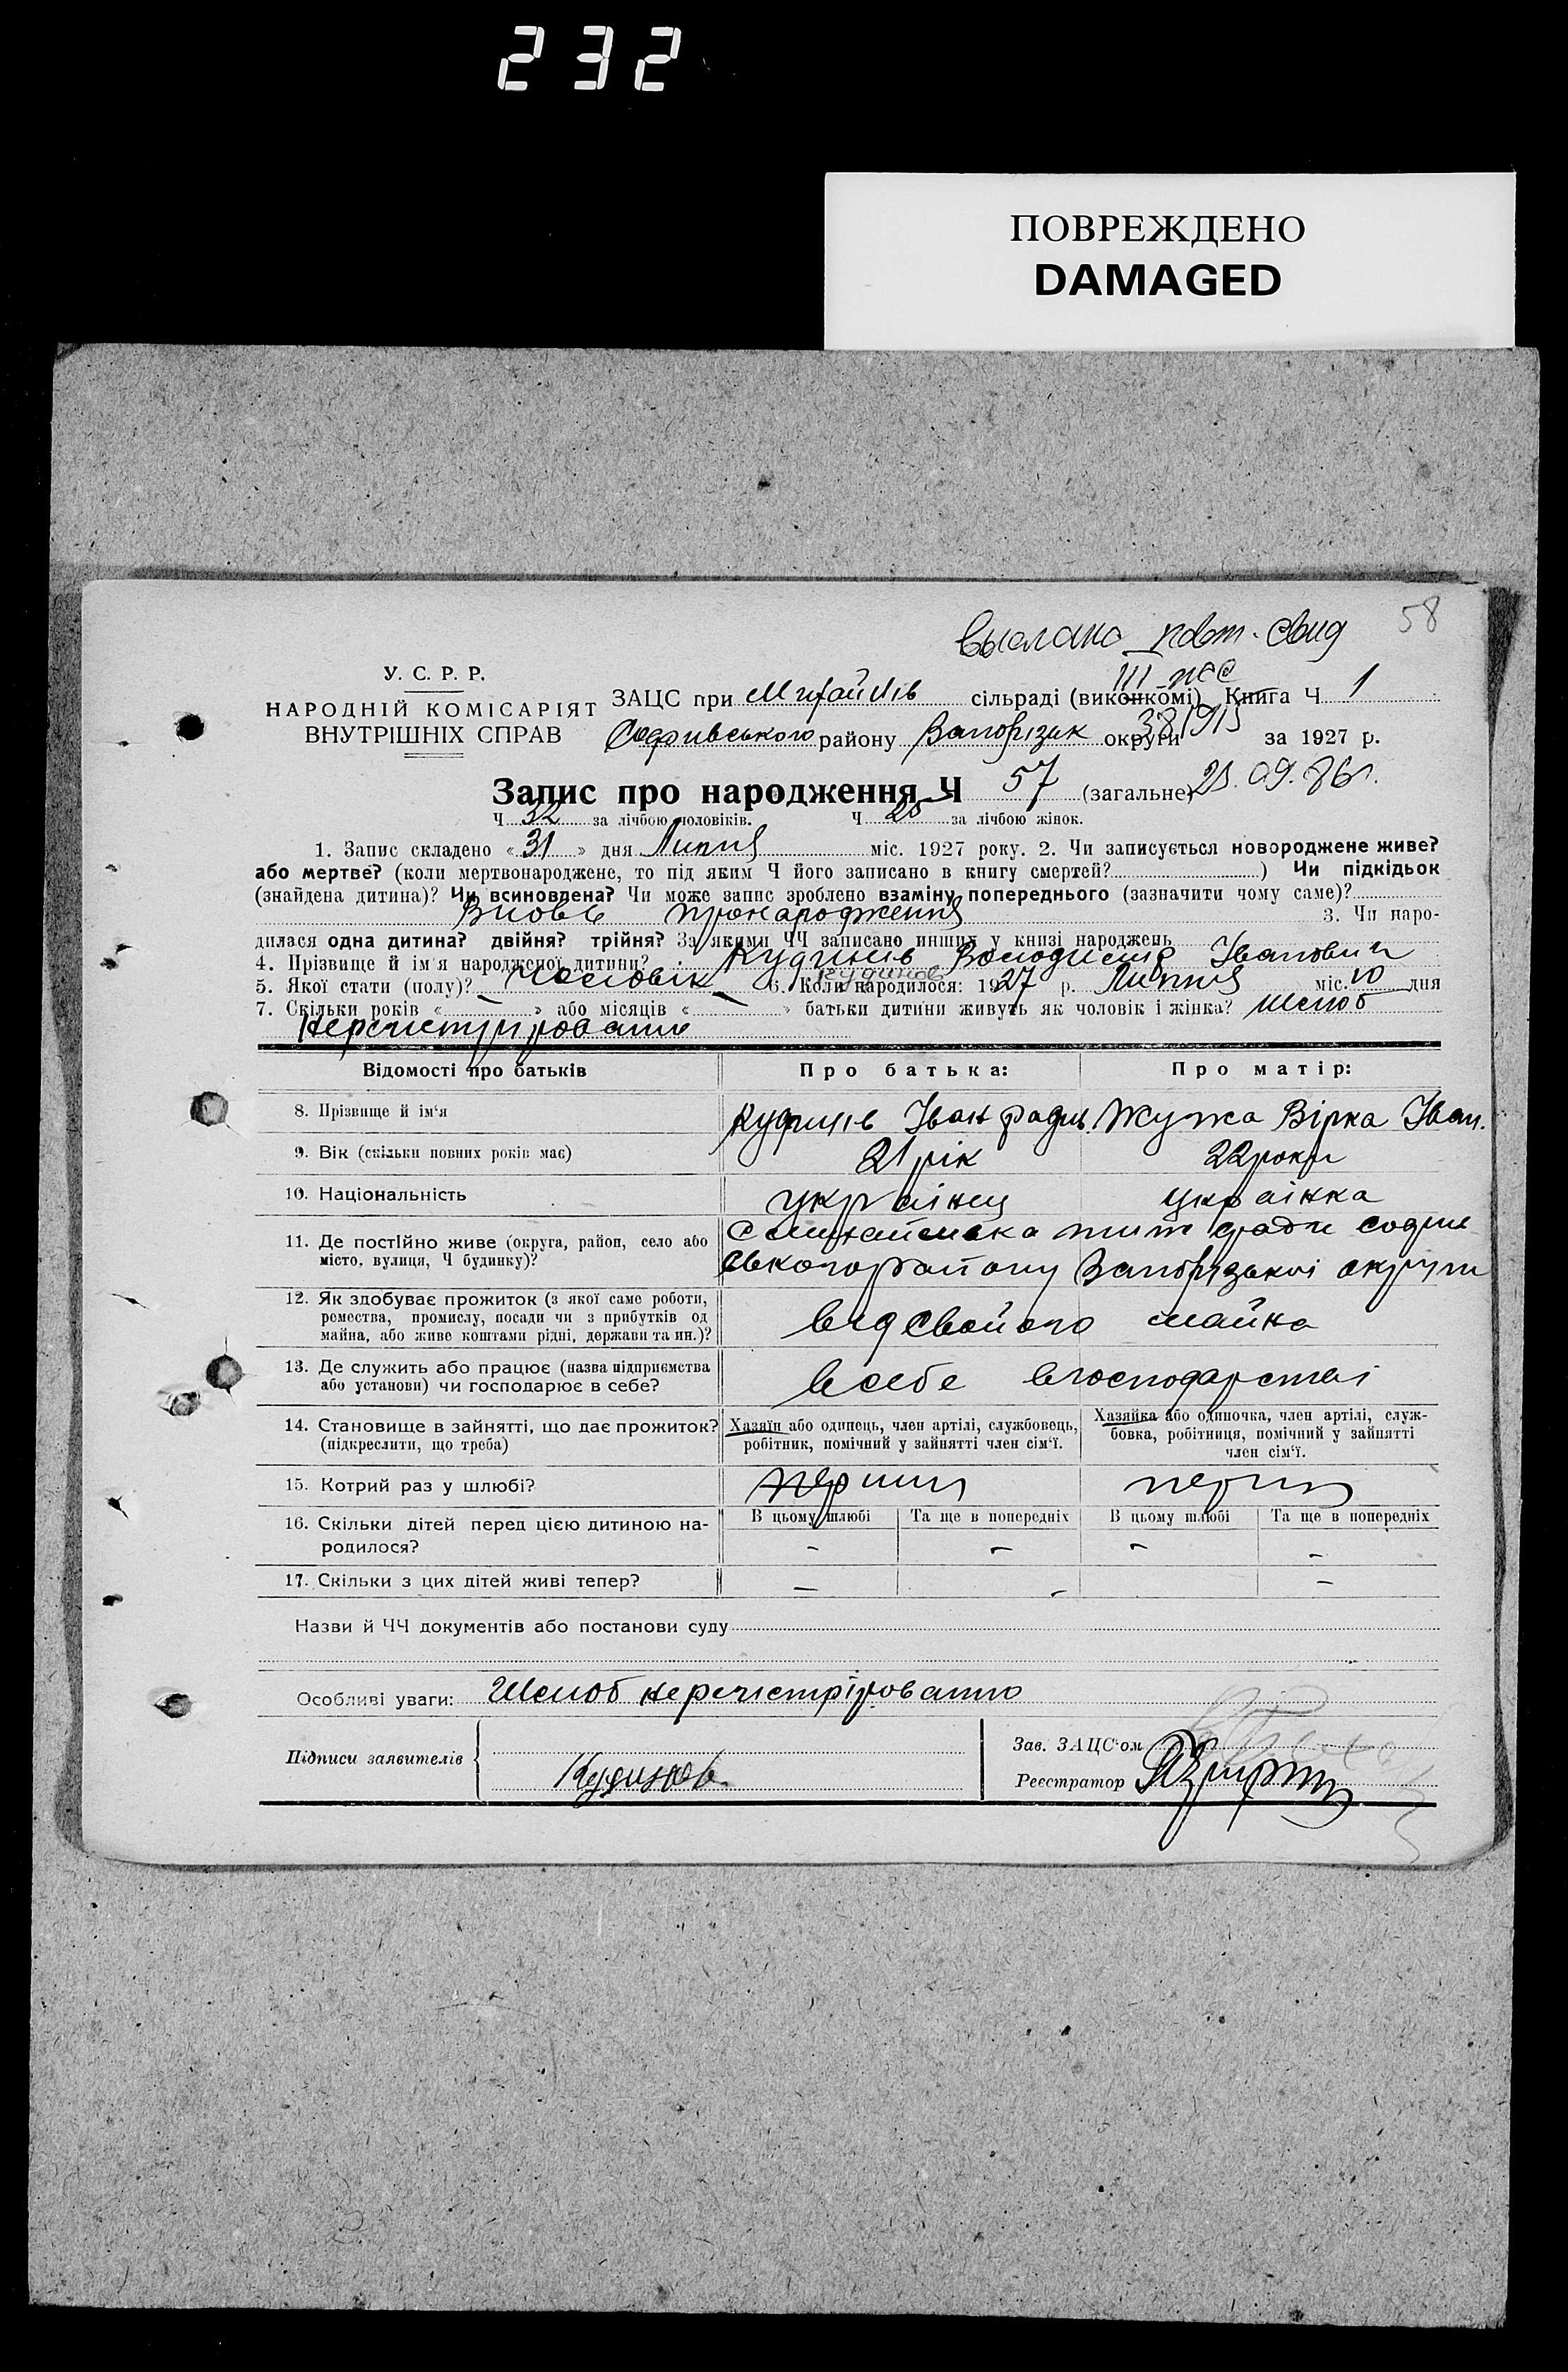 232
ПОВРЕЖДЕНО
DAMAGED
58
выслано повт. свид
III-ЖС
У. С. Р. Р.
НАРОДНІЙ КОМІСАРІЯТ
ВНУТРІШНІХ СПРАВ
ЗАЦС при Михайлів сільраді (виконкомі) Книга Ч 1
району Запорізьк округи за 1927 р.
Запис про народження Ч 57 (загальне) 23.09.86г.
Ч 32 за лічбою чоловіків. Ч 25 за лічбою жінок.
1. Запис складено «31» дня Липня міс. 1927 року. 2. Чи записується новороджене живе?
або мертве? (коли мертвонароджене, то під яким Ч його записано в книгу смертей?) Чи підкідьок
(знайдена дитина)? Чи всиновлена? Чи може запис зроблено взаміну попереднього (зазначити чому саме)?
Вновь пронародження 3. Чи наро-
дилася одна дитина? двійня? трійня? За якими ЧЧ записано инших у книзі народжень
4. Прізвище й ім'я народженої дитини? Кудинів Володимир Іванович
Кудинов
5. Якої стати (полу)? Чоловік 6. Коли народилося: 1927 р. Липня міс. 10 дня
7. Скільки років « » або місяців « » батьки дитини живуть як чоловік і жінка? Шлюб
Нерегистрировано
Відомості про батьків Про батька: Про матір:
8. Прізвище й ім'я Кудинів Іван Жужа Вірка Іван.
9. Вік (скільки повних років має) 21 рік 22 роки
10. Національність українец українка
11. Де постійно живе (округа, район, село або
місто, вулиця, Ч будинку)? ського району Запорізької округи
12. Як здобуває прожиток (з якої саме роботи,
ремества, промислу, посади чи з прибутків од
майна, або живе коштами рідні, держави та ин.)? від свойого майна
13. Де служить або працює (назва підприємства
або установи) чи господарює в себе? в себе вгосподарстві
14. Становище в зайнятті, що дає прожиток?
(підкреслити, що треба)
Хазяїн або одинець, член артілі, службовець,
робітник, помічний у зайнятті член сім'ї.
Хазяйка або одиночка, член артілі, служ-
бовка, робітниця, помічний у зайнятті
член сім'ї.
15. Котрий раз у шлюбі? перший перший
16. Скільки дітей перед цією дитиною на-
родилося?
В цьому шлюбі Та ще в попередніх В цьому шлюбі Та ще в попередніх
– – – –
17. Скільки з цих дітей живі тепер? – – –
Назви й ЧЧ документів або постанови суду
Особливі уваги: Шлюб нерегистріровано
Підписи заявителів Кудинов
Зав. ЗАЦС'ом
Реєстратор